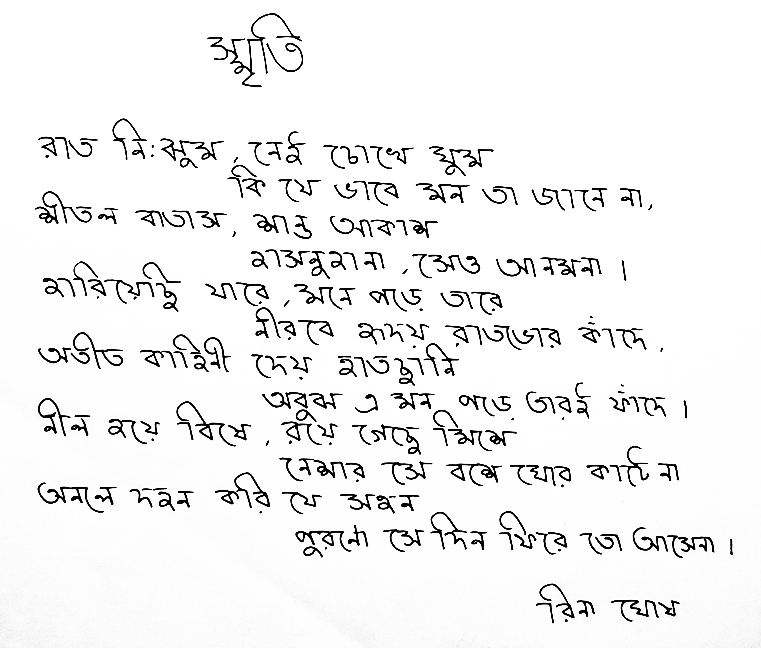 স্মৃতি
রাত নিঃঝুম, নেই চোখে ঘুম
কি যে ভাবে মন তা জানে না,
শীতল বাতাস, শান্ত আকাশ
হাসনুহানা, সেও আনমনা।
হারিয়েছি যারে, মনে পড়ে তারে
নীরবে হৃদয় রাতভোর কাঁদে,
অতীত কাহিনী দেয় হাতছানি
অবুঝ এ মন পড়ে তারই ফাঁদে।
নীল হয়ে বিষে, রয়ে গেছে মিশে
নেশার সে বশে ঘোর কাটে না
অনলে দহন করি যে সহন
পুরনো সে দিন ফিরে তো আসেনা।
রিনা ঘোষ